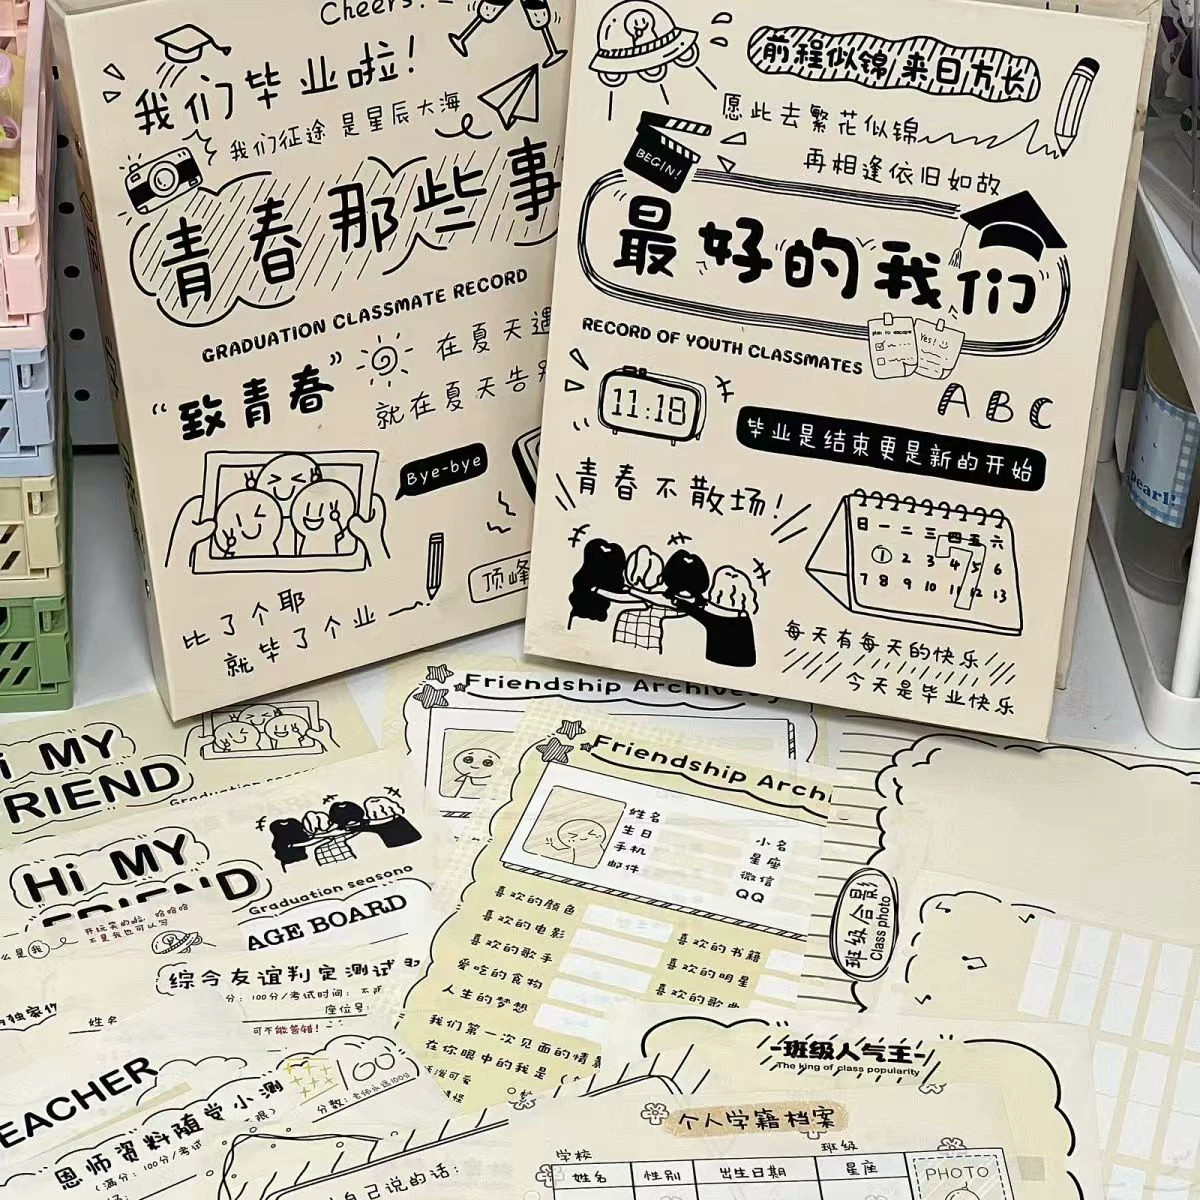 Cheers!
我们毕业啦!
我们征途是星辰大海
青春那些事
GRADUATION CLASSMATE RECORD
"致青春"
在夏天遇
就在夏天告别
Bye-bye
比了个耶
就毕了个业
顶峰
前程似锦 来日方长
愿此去繁花似锦
再相逢依旧如故
BEGIN!
最好的我们
RECORD OF YOUTH CLASSMATES
plan to escape
Yes!
11:18
A B C
毕业是结束更是新的开始
青春不散场!
日 一 二 三 四 五 六
1 2 3 4 5 6
7 8 9 10 11 12 13
每天有每天的快乐
今天是毕业快乐
Hi MY
FRIEND
Friendship Archives
Friendship Archi
姓名
小名
生日
星座
手机
微信
邮件
QQ
喜欢的颜色
喜欢的电影
喜欢的书籍
喜欢的歌手
喜欢的明星
爱吃的食物
喜欢的歌曲
人生的梦想
我们第一次见面的情景
在你眼中的我是
班级合影
Class photo
Hi MY
FRIEND
Graduation seasono
开玩笑的啦 哈哈哈
不是我也可以写
么是我
AGE BOARD
综合友谊判定测试
分: 100分/考试时间: 不限
座位号:
姓名
可不能答错!
TEACHER
恩师资料随堂小测
(满分: 100分/考试
100
分数: 老师永远100分
自己说的话:
班级人气王
The king of class popularity
个人学籍档案
学校
班级
姓名 性别 出生日期 星座 PHOTO